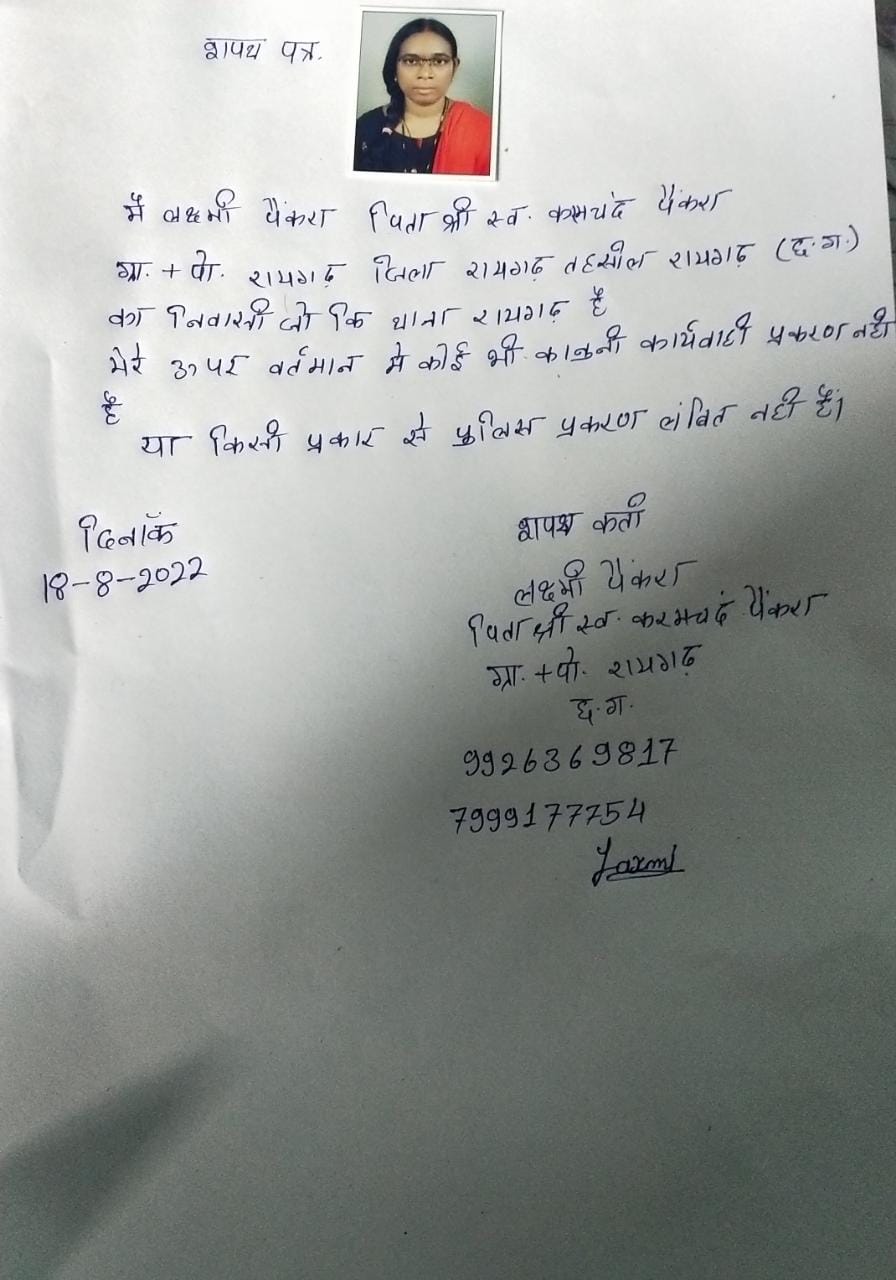 शपथ पत्र.
मैं लक्ष्मी पैंकरा पिता श्री स्व. करमचंद पैंकरा
ग्रा. + पो. रायगढ़ जिला रायगढ़ तहसील रायगढ़ (छ.ग.)
का निवासी जो कि थाना रायगढ़ है
मेरे ऊपर वर्तमान मे कोई भी कानुनी कार्यवाही प्रकरण नही
है
या किसी प्रकार से पुलिस प्रकरण लंबित नही हैं।
दिनाॅक
18-8-2022
शपथ कर्ता
लक्ष्मी पैंकरा
पिता श्री स्व. करमचदं पैंकरा
ग्रा. + पो. रायगढ़
छ.ग.
9926369817
7999177754
Laxmi